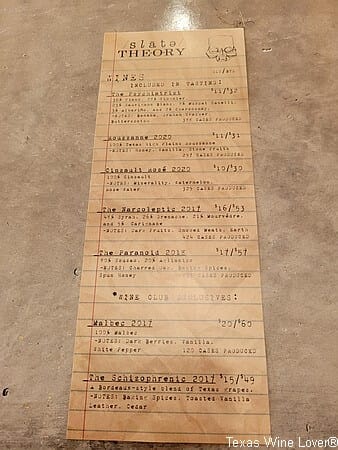 slate
THEORY
WINES
INCLUDED IN TASTING:
The Psychiatrist $11/$32
376 CASES PRODUCED
Roussanne 2020 $11/$31
100% Texas High Plains Roussanne
-NOTES: Honey, Vanilla, Stone Fruits
297 CASES PRODUCED
Cinsault Rosé 2020 $10/$30
100% Cinsault
-NOTES: Minerality, Watermelon,
Rose Water 325 CASES PRODUCED
The Narcoleptic 2017 $16/$53
Syrah, Grenache, 21% Mourvèdre,
and 5% Carignane
-NOTES: Dark Fruits, Smoked Meats, Earth
424 CASES PRODUCED
The Paranoid $17/$57
-NOTES: Charred Oak, Spices,
Spun Honey CASES PRODUCED
WINE CLUB EXCLUSIVES:
Malbec 2017 $20/$60
100% Malbec
-NOTES: Dark Berries, Vanilla,
White Pepper 120 CASES PRODUCED
The Schizophrenic 2017 $15/$49
A Bordeaux-style blend of Texas grapes.
-NOTES: Baking Spices, Toasted Vanilla
Leather, Cedar
Texas Wine Lover®